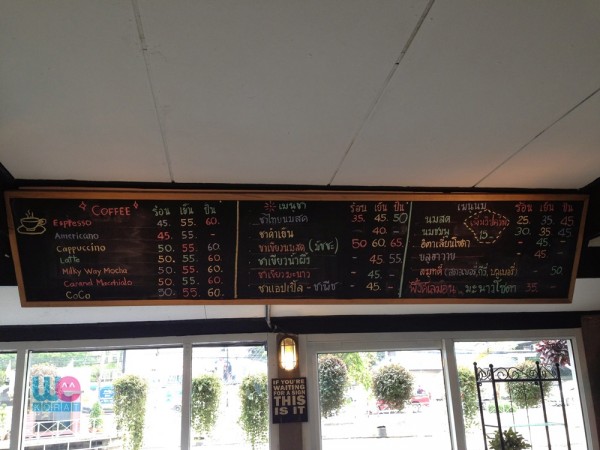 COFFEE ร้อน เย็น ปั่น
Espresso 50. 55. 60.
Americano 45. 55. -
Cappuccino 50. 55. 60.
Latte 50. 55. 60.
Milky Way Mocha 50. 55. 60.
Caramel Macchiato 50. 55. 60.
CoCa 50. 55. 60.
เมนูชา ร้อน เย็น ปั่น
ชาไทยนมสด 35. 45. 50
ชาดำเย็น - 40. -
ชาเขียวนมสด (มัทฉะ) 50 60. 65
ชาเขียวน้ำผึ้ง - 45 55
ชาเขียวมะนาว - 45. -
ชาแอปเปิ้ล - ชาพีช - 45. -
เมนูนม ร้อน เย็น ปั่น
นมสด 25. 35 45
นมชมพู 15.- 30. 35 45
อิตาเลี่ยนโซดา - 45 -
บลูฮาวาย - 45. -
สมูทตี้ 50
มะนาวโซดา 35. -
IF YOU'RE
WAITING
FOR A SIGN
THIS
IS IT
We
KORAT